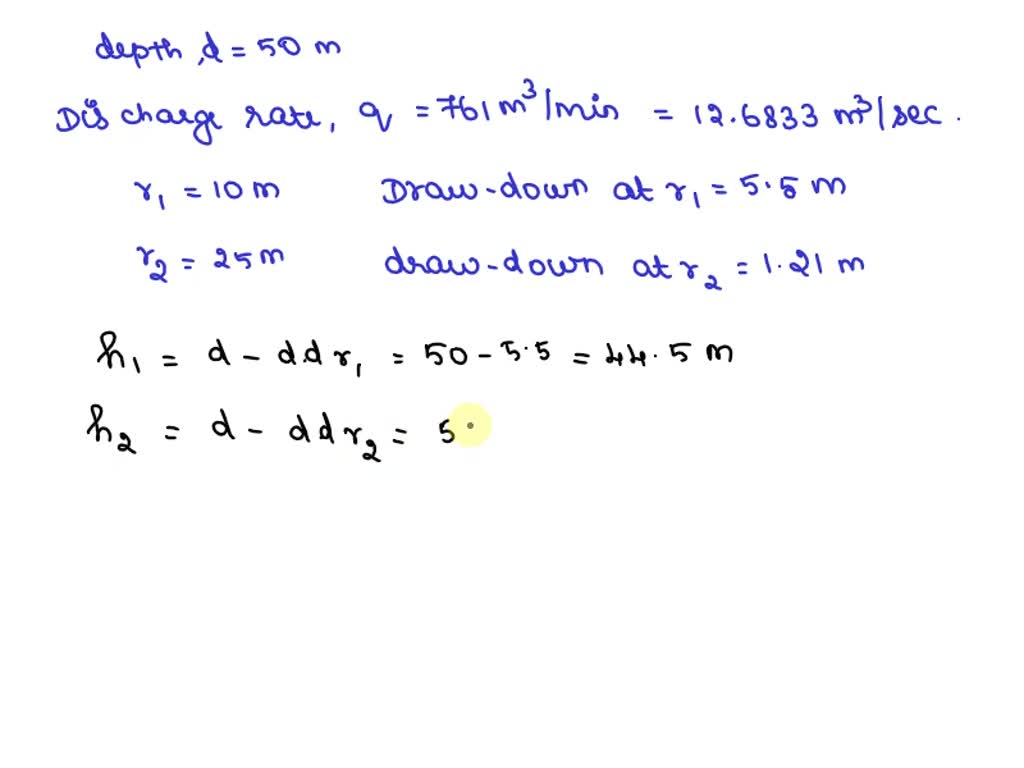 depth, d = 50 m
Discharge rate, q = 761 m³/min = 12.6833 m³/sec.
r₁ = 10 m Draw-down at r₁ = 5.5 m
r₂ = 25 m draw-down at r₂ = 1.21 m
h₁ = d - dd r₁ = 50 - 5.5 = 44.5 m
h₂ = d - dd r₂ = 5